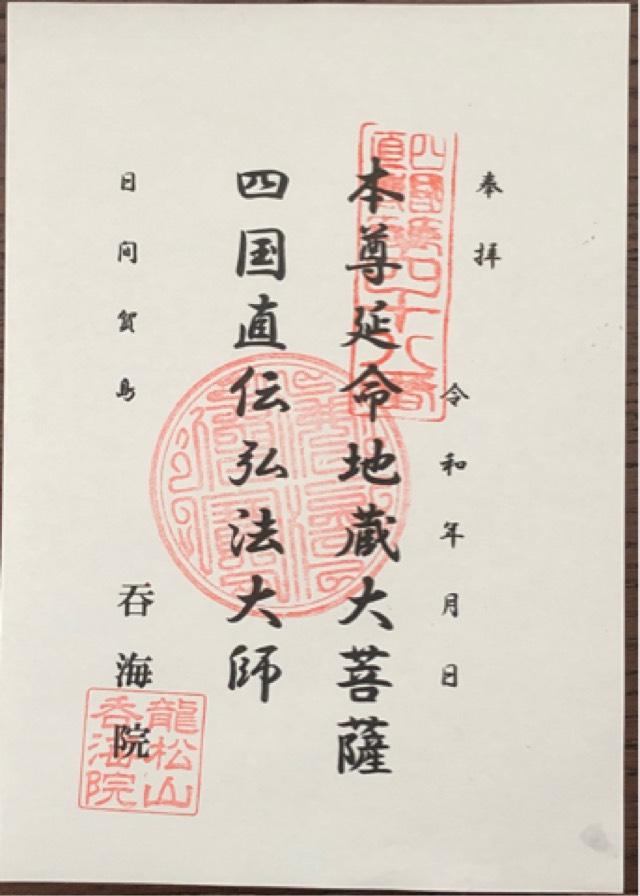 奉拝
令和年月日
本尊延命地蔵大菩薩
四国直伝弘法大師
日间賀島
呑海院
四國
直
四十八番
龍松山
呑海院